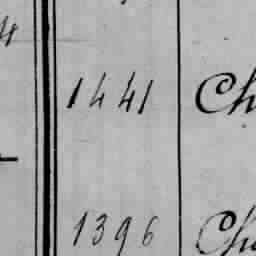 4
1441 Ch
1396 Ch